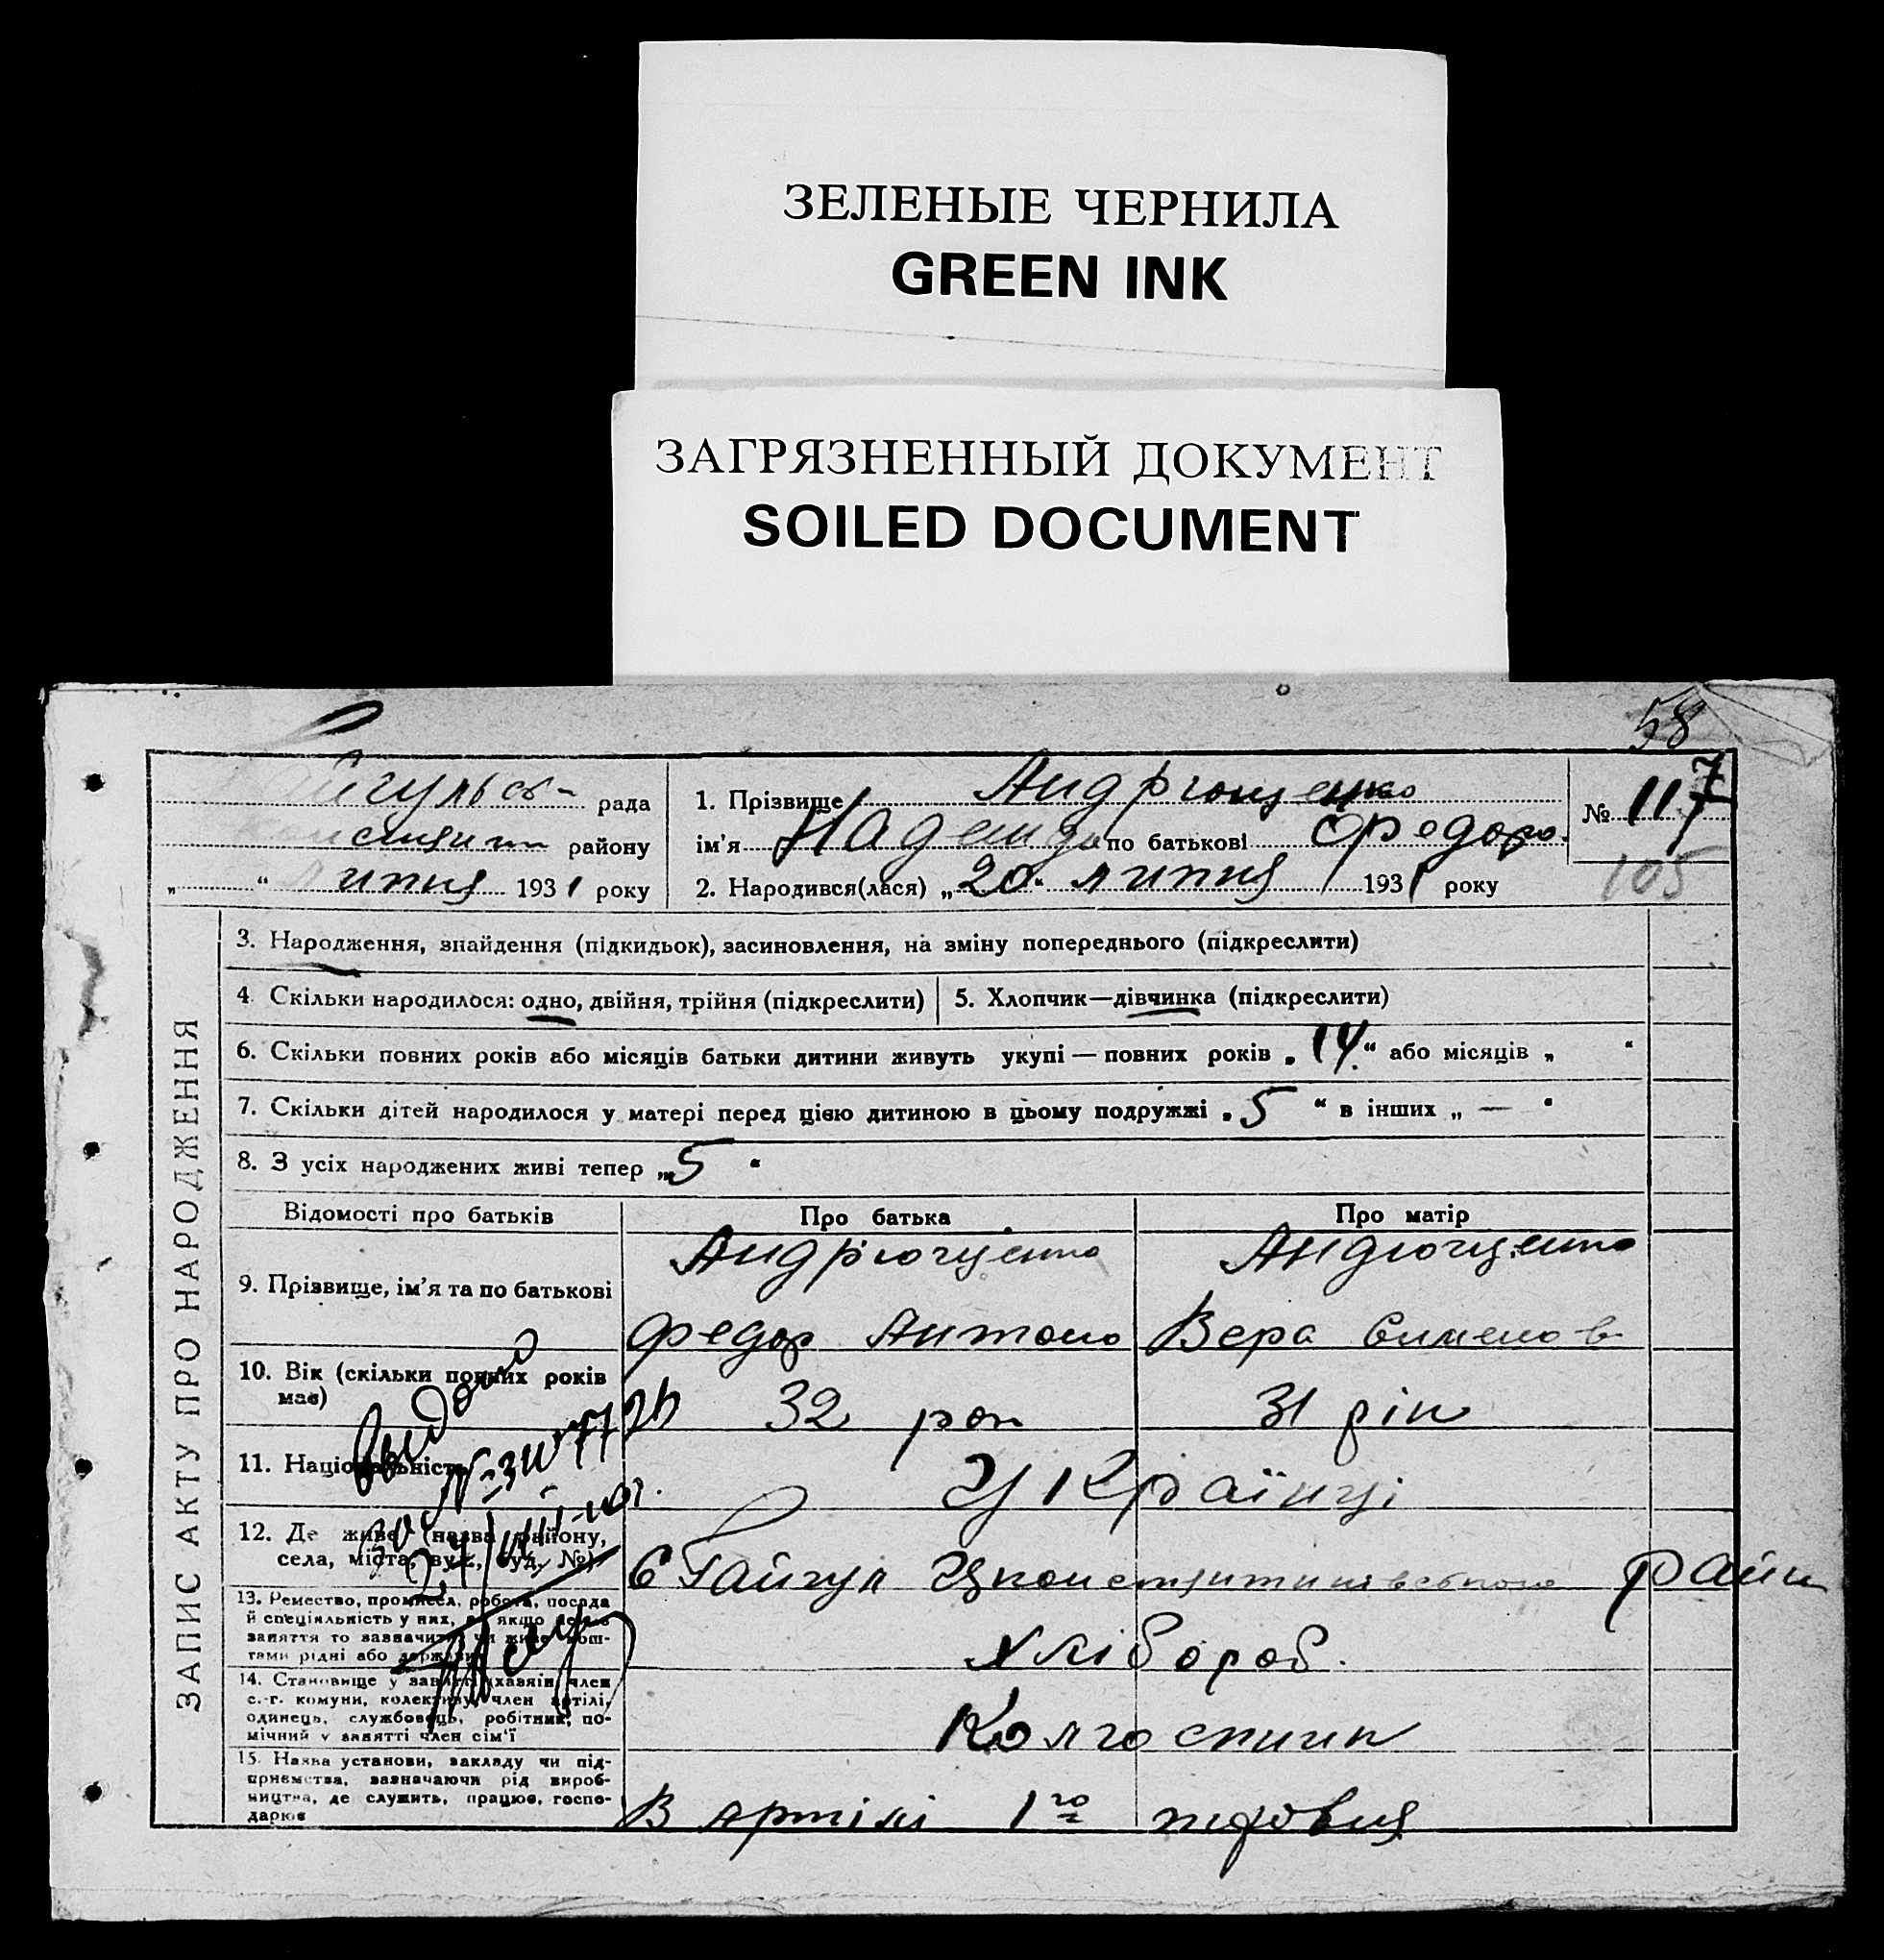 ЗЕЛЕНЫЕ ЧЕРНИЛА
GREEN INK
ЗАГРЯЗНЕННЫЙ ДОКУМЕНТ
SOILED DOCUMENT
58
рада
району
„ “ липня 1931 року
1. Прізвище Андрющенко
ім'я по батькові Федоро.
2. Народився(лася) „20“ липня 1931 року
№ 117
105
ЗАПИС АКТУ ПРО НАРОДЖЕННЯ
3. Народження, знайдення (підкидьок), засиновлення, на зміну попереднього (підкреслити)
4. Скільки народилося: одно, двійня, трійня (підкреслити)
5. Хлопчик—дівчинка (підкреслити)
6. Скільки повних років або місяців батьки дитини живуть укупі — повних років „14“ або місяців „ “
7. Скільки дітей народилося у матері перед цією дитиною в цьому подружжі „5“ в інших „ — “
8. З усіх народжених живі тепер „5“
Відомості про батьків Про батька Про матір
9. Прізвище, ім'я та по батькові
Андрющенко Андющенко
Федор Антоно Вера Сименов
10. Вік (скільки повних років
має)
32 рок 31 рік
11. Національність
Українці
12. Де живе (назва району,
села, міста, вул., буд. №)
С Гайгул райн
13. Ремество, промисел, робота, посада
й спеціяльність у них, а якщо
заняття то зазначити чи живе кош-
тами рідні або держави
Хлібороб.
14. Становище у занятті (хазяїн, член
с.-г. комуни, колективу, член артілі,
одинець, службовець, робітник, по-
мічний у занятті член сім'ї
Колгоспник
15. Назва установи, закладу чи під-
приємства, зазначаючи рід вироб-
ництва, де служить, працює, госпо-
дарює
В артілі 1го жовтня